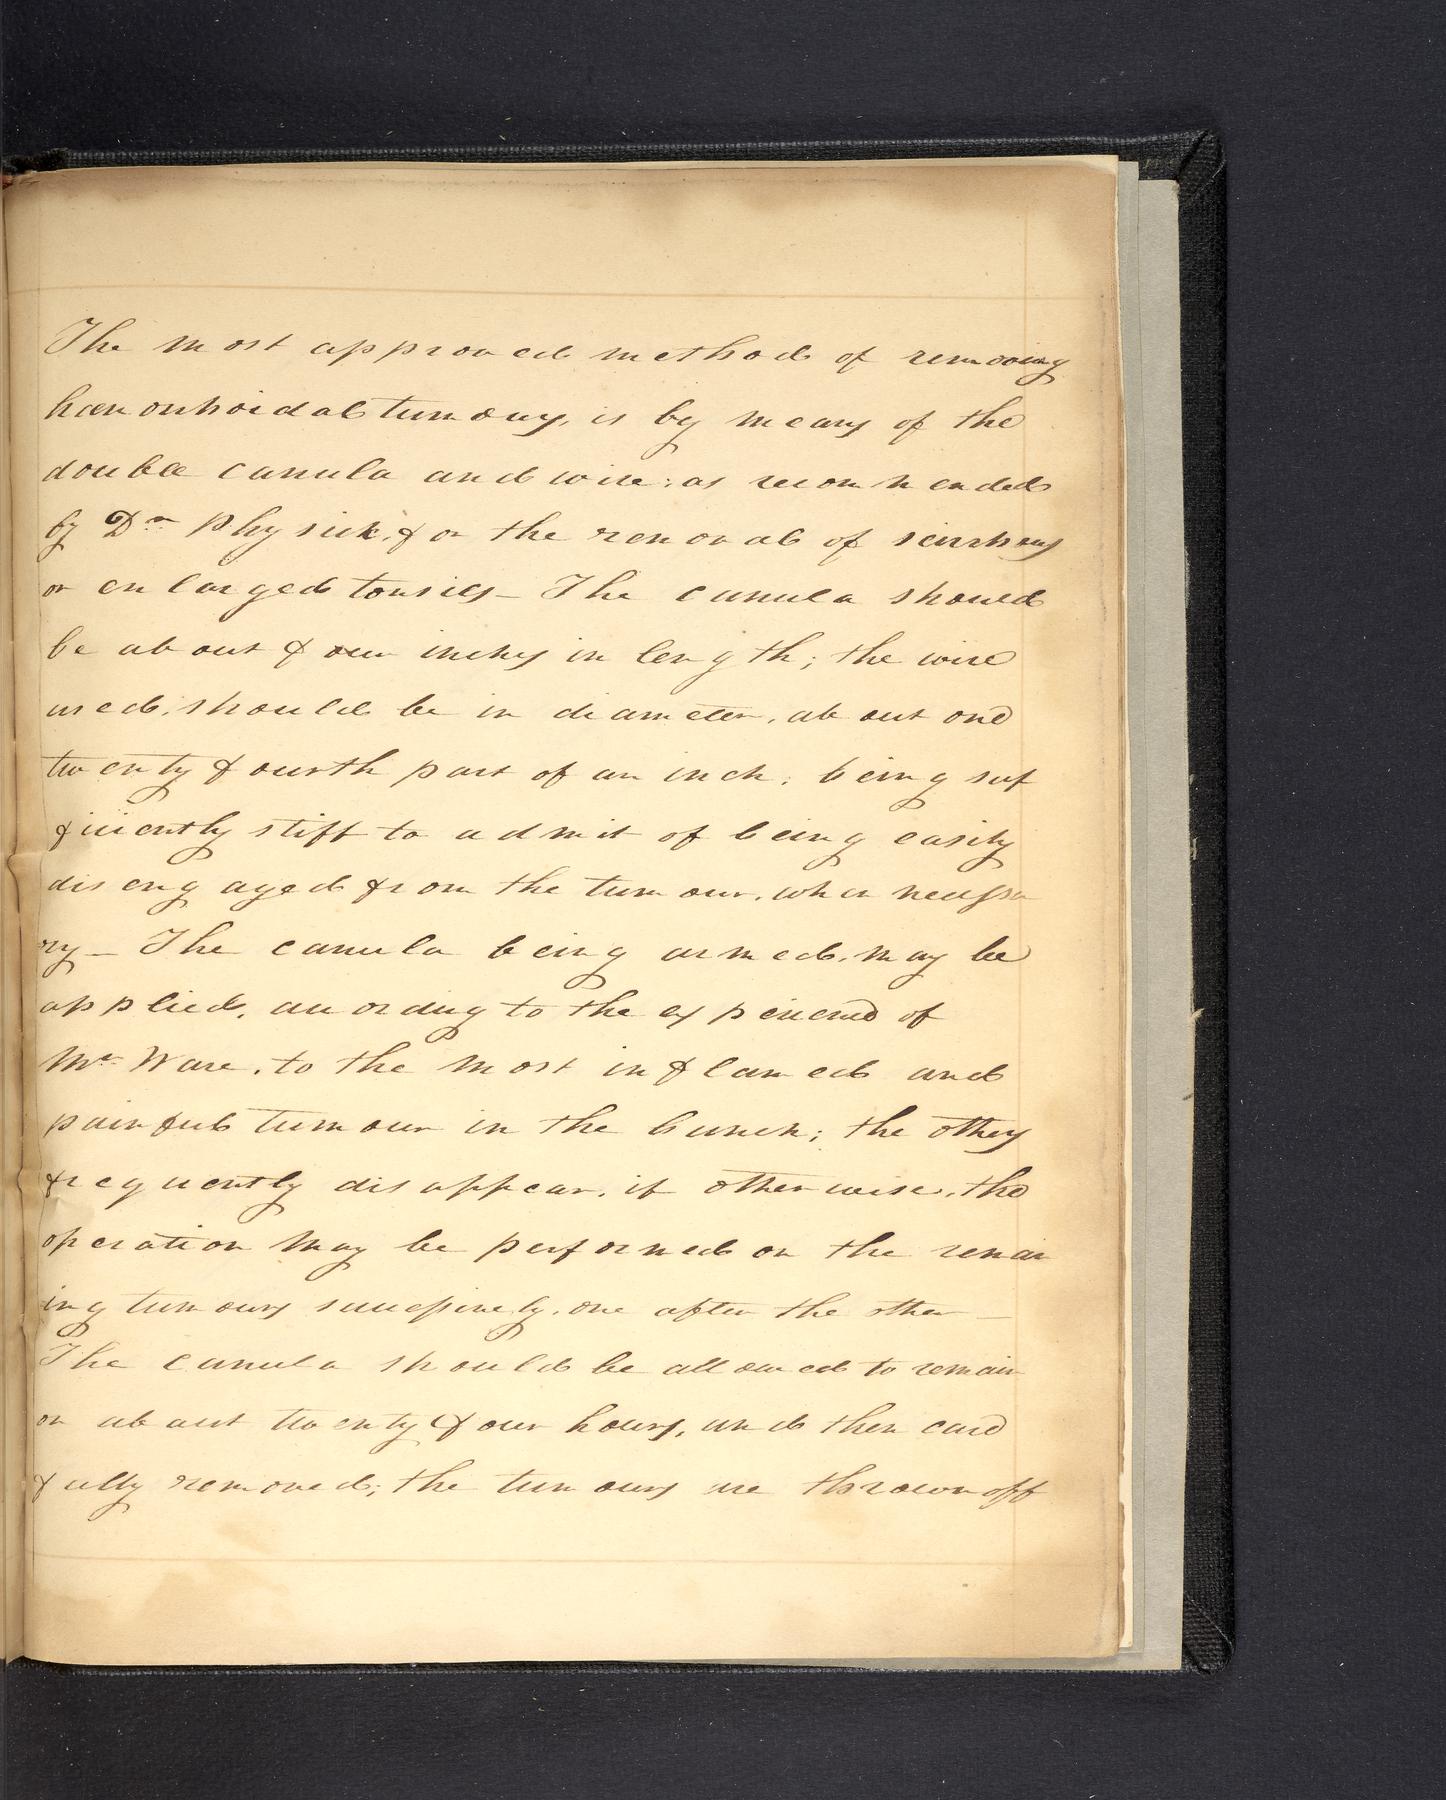 The most approved method of removing
hæmorrhoidal tumours, is by means of the
double canula and wire; as recommended
by Dr. Physick, for the removal of scirrhous
or enlarged tonsils – The canula should
be about four inches in length; the wire
used, should be in diameter, about one
twenty fourth part of an inch; being suf
ficiently stiff to admit of being easily
disengaged from the tumour, when necessa
ry – The canula being armed, may be
applied, according to the experience of
Mr. Ware, to the most inflamed and
painful tumour in the bunch; the others
frequently disappear, if otherwise, the
operation may be performed on the remain
ing tumours successively, one after the other –
The canula should be allowed to remain
on about twenty four hours, and then care
fully removed; the tumours are thrown off